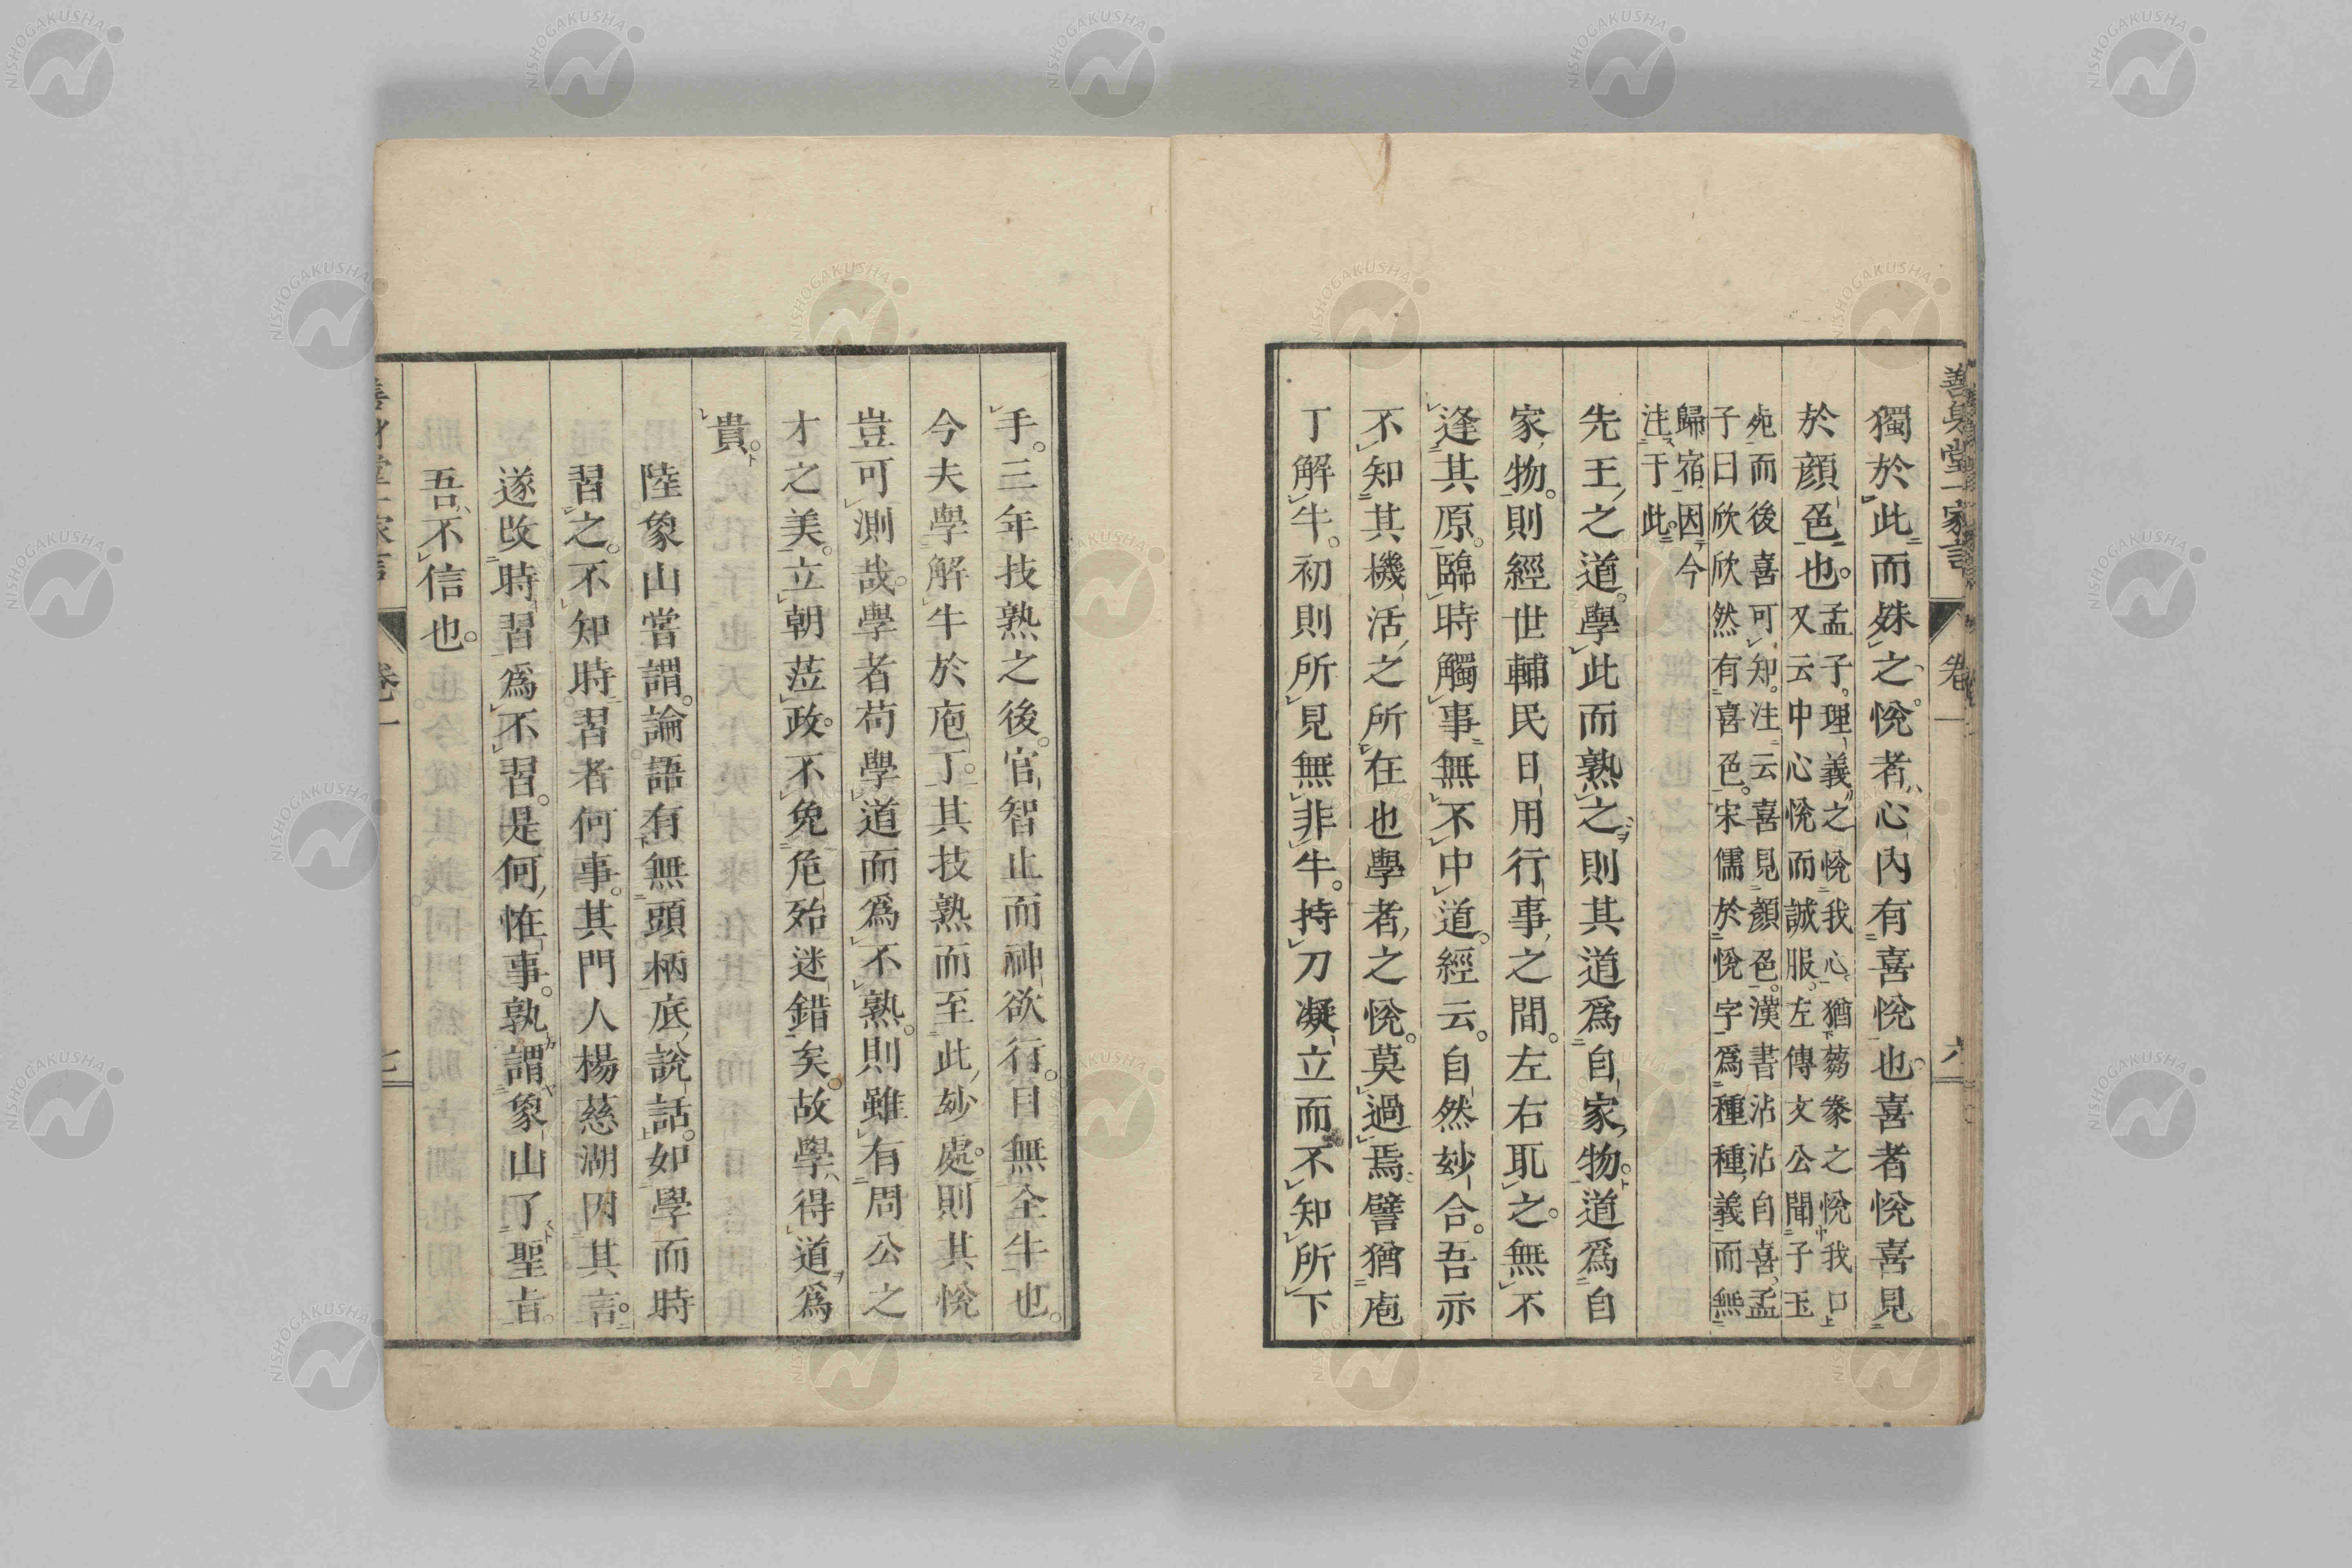 善身堂一家言 卷一 六
獨於此而殊之。悅者心內有喜悅也。喜者悅喜見
於顏色也。
孟子。理義之悅我心猶芻豢之悅我口
又云中心悅而誠服。左傳文公聞子玉
死而後喜可知。注云喜見顏色。漢書沾沾自喜。孟
子曰欣欣然有喜色。宋儒於悅字爲種種義而無
歸宿因今
注于此
先王之道。學此而熟之則其道爲自家物。道爲自
家物。則經世輔民日用行事之間。左右取之。無不
逢其原。臨時觸事無不中道。經云。自然玅合。吾亦
不知其機活之所在也學者之悅。莫過焉譬猶庖
丁解牛。初則所見無非牛。持刀凝立而不知所下
手。三年技熟之後。官智止而神欲行。目無全牛也。
今夫學解牛於庖丁。其技熟而至此玅處。則其悅
豈可測哉。學者苟學道而爲不熟。則雖有周公之
才之美。立朝蒞政。不免危殆迷錯矣。故學得道爲
貴。
陸象山嘗謂。論語有無頭柄底說話。如學而時
習之。不知時習者何事。其門人楊慈湖因其言。
遂改時習爲不習。是何恠事。孰謂象山了聖旨。
吾不信也。
善身堂一家言 卷一 七